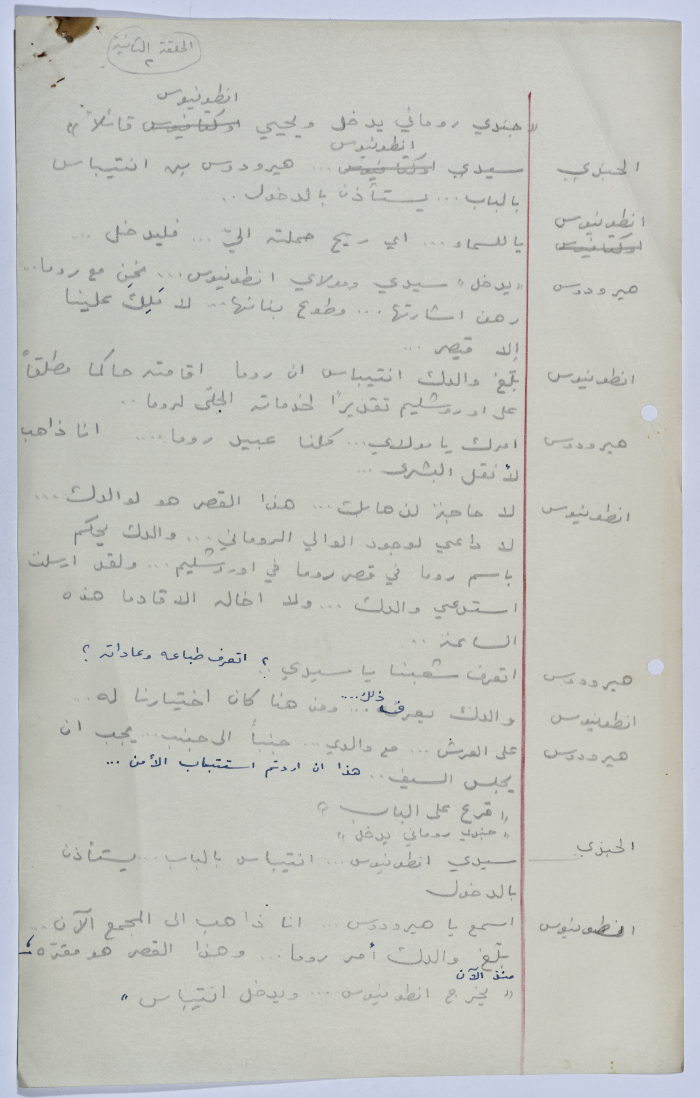 الحلقة الثانية
٢
انطونيوس
« جندي روماني يدخل ويحيي اوكتافيوس قائلاً »
انطونيوس
الجندي سيدي اوكتافيوس ... هيرودوس بن انتيباس
بالباب ... يستأذن بالدخول ..
انطونيوس
اوكتافيوس يا للسماء ... اي ريح حملته اليّ ... فليدخل ...
هيرودوس « يدخل » سيدي ومولاي انطونيوس ... نحن مع روما ..
رهن اشارتها ... وطوع بنانها ... لا مَلِكَ علينا
إلا قيصر ...
انطونيوس بلّغ والدك انتيباس ان روما اقامته حاكما مطلقاً
على اورشليم تقديراً لخدماته الجلّى لروما ..
هيرودوس امرك يا مولاي ... كلنا عبيد روما .... انا ذاهب
لأنقل البشرى ...
انطونيوس لا حاجة لذهابك ... هذا القصر هو لوالدك ...
لا داعي لوجود الوالي الروماني ... والدك يحكم
باسم روما في قصر روما في اورشليم ... ولقد ارسلت
استدعي والدك ... ولا اخاله الا قادما هذه
الساعة ..
هيرودوس اتعرف شعبنا يا سيدي ؟ اتعرف طباعه وعاداته ؟
انطونيوس والدك يعرف ذلك .... ومن هنا كان اختيارنا له ..
هيرودوس على العرش ... مع والدي ... جنباً الى جنب ... يجب ان
يجلس السيف .. هذا ان اردتم استتباب الأمن ...
« قرع على الباب »
« جندي روماني يدخل »
الجندي سيدي انطونيوس ... انتيباس بالباب ... يستأذن
بالدخول
انطونيوس اسمع يا هيرودوس ... انا ذاهب الى المجمع الآن ..
بلّغ والدك أمر روما ... وهذا القصر هو مقرّه
منذ الآن
« يخرج انطونيوس ... ويدخل انتيباس »